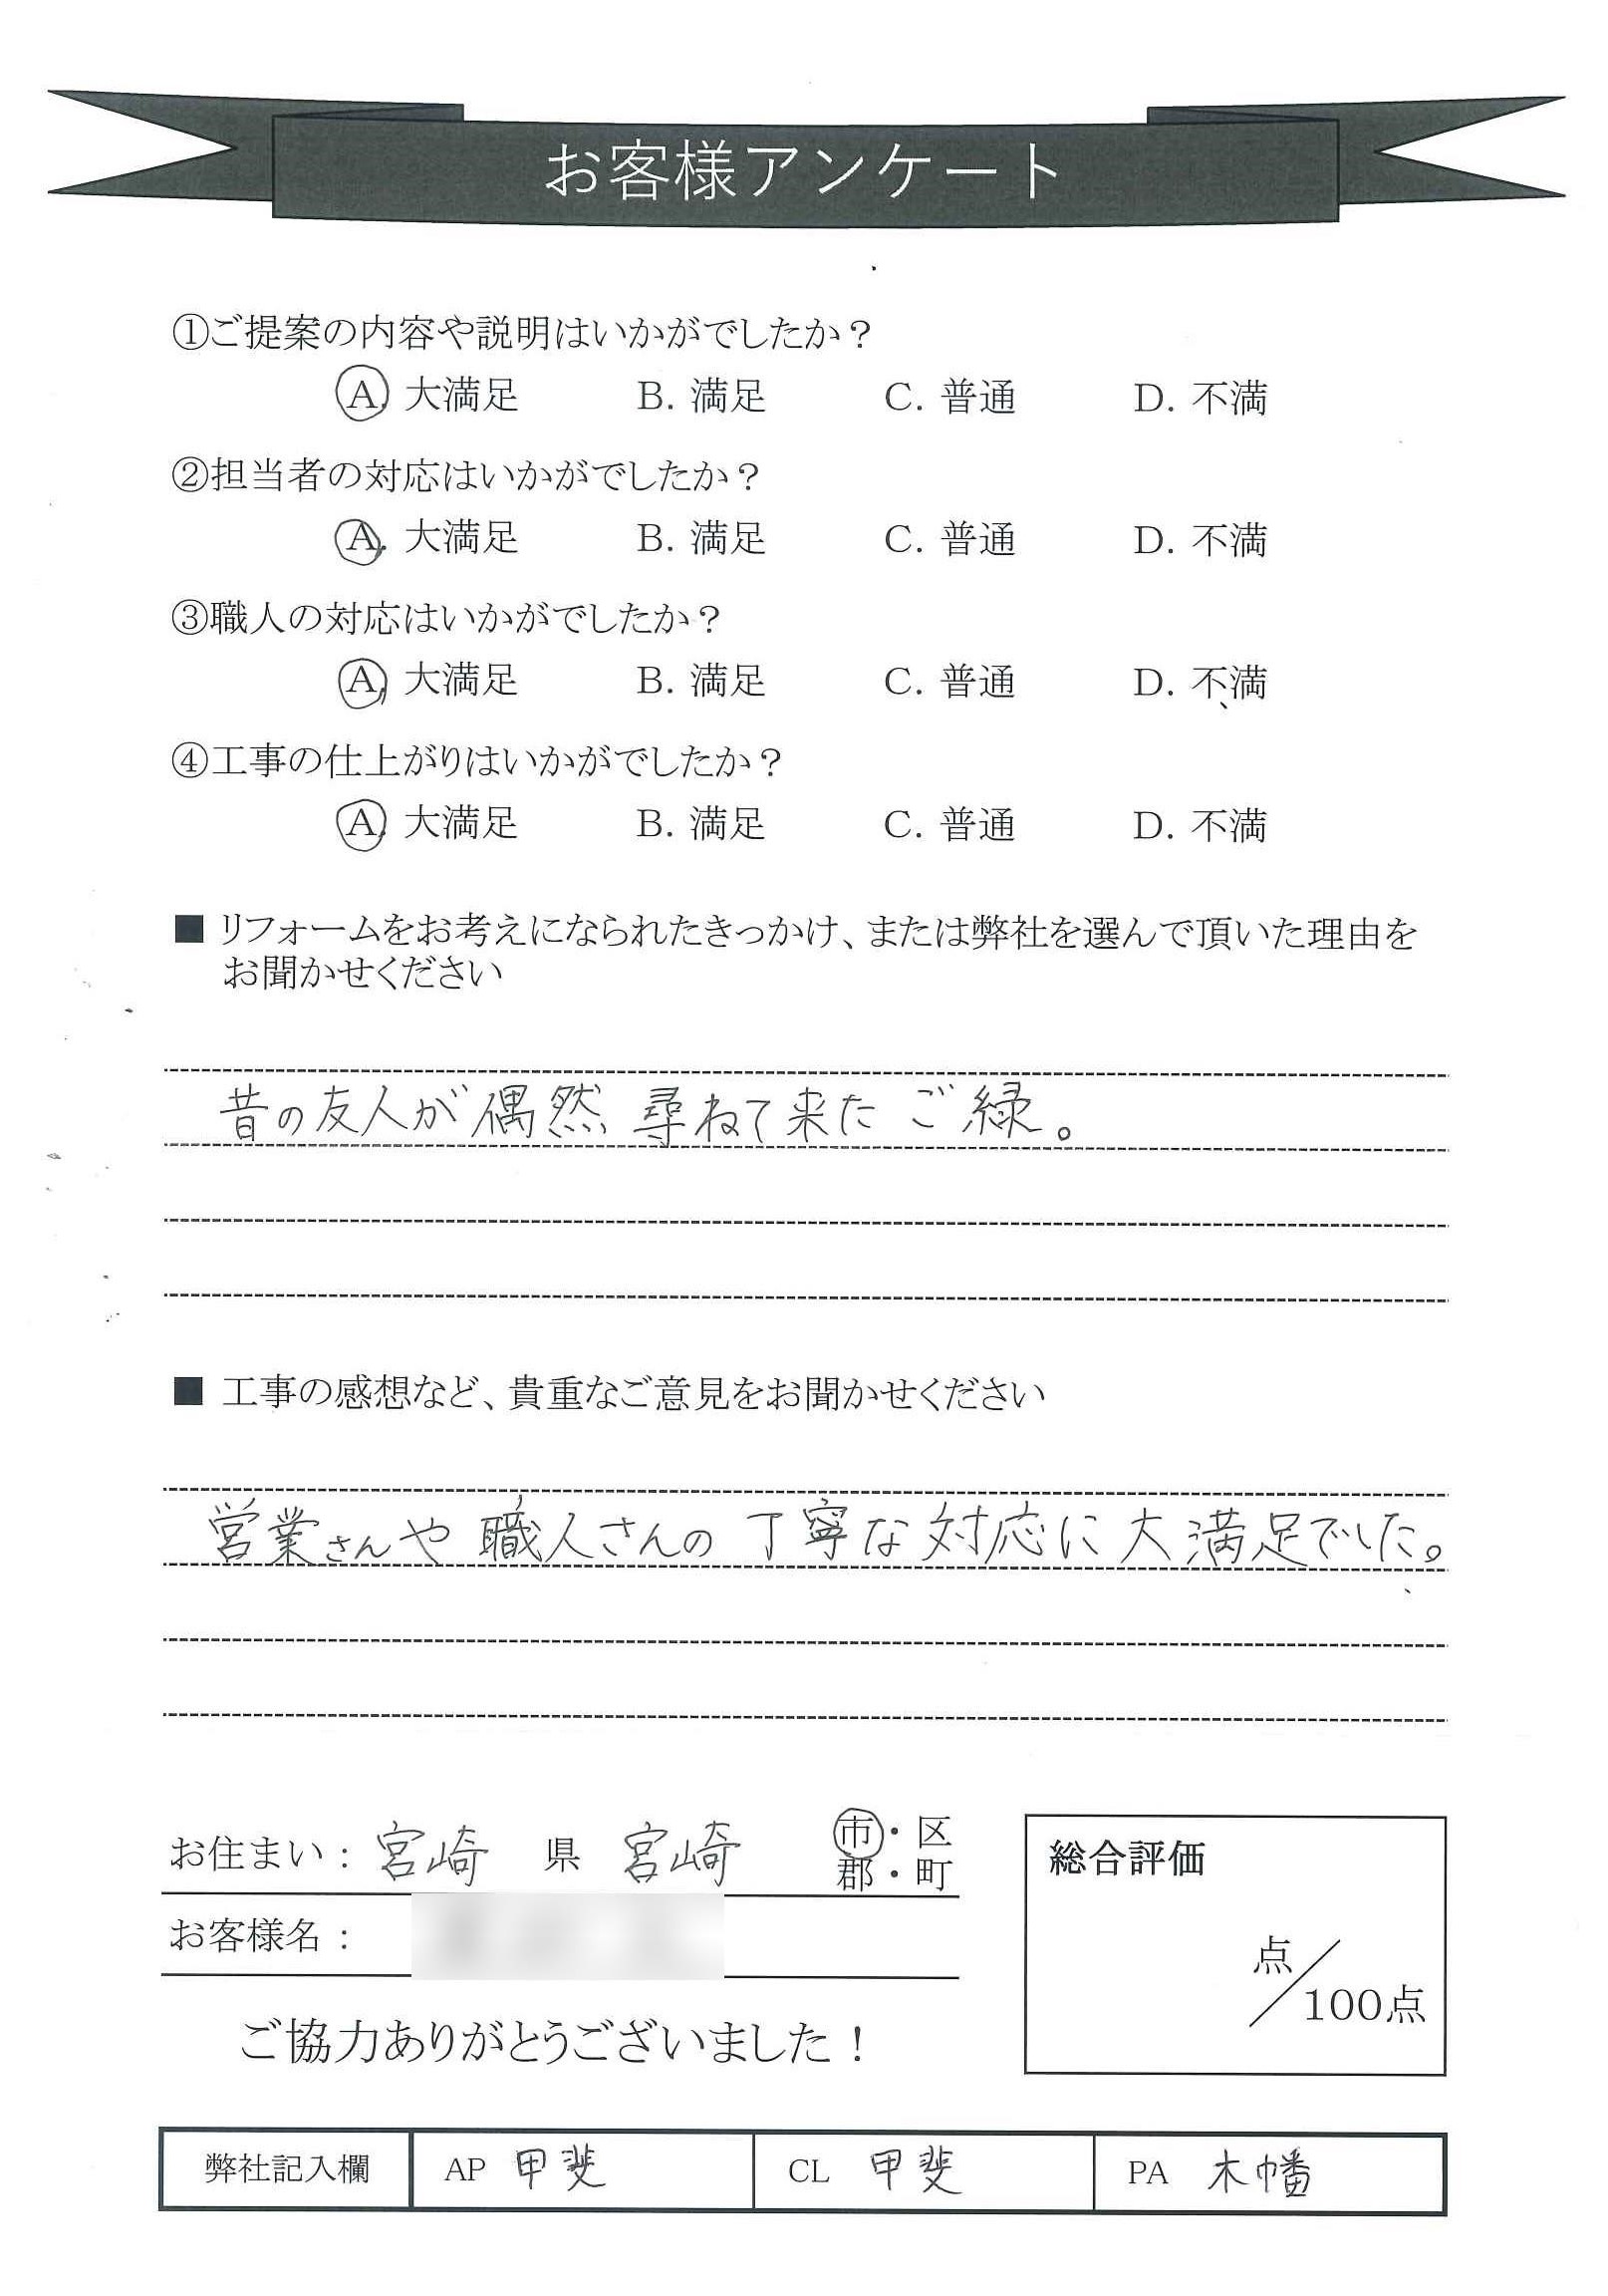 お客様アンケート
①ご提案の内容や説明はいかがでしたか？
A. 大満足 B. 満足 C. 普通 D. 不満
②担当者の対応はいかがでしたか？
A. 大満足 B. 満足 C. 普通 D. 不満
③職人の対応はいかがでしたか？
A. 大満足 B. 満足 C. 普通 D. 不満
④工事の仕上がりはいかがでしたか？
A. 大満足 B. 満足 C. 普通 D. 不満
■ リフォームをお考えになられたきっかけ、または弊社を選んで頂いた理由を
お聞かせください
昔の友人が偶然 尋ねて来た ご縁。
■ 工事の感想など、貴重なご意見をお聞かせください
営業さんや 職人さんの 丁寧な対応に 大満足でした。
お住まい： 宮崎 県 宮崎 市・区
郡・町
お客様名：
ご協力ありがとうございました！
総合評価
点／100点
弊社記入欄 AP 甲斐 CL 甲斐 PA 木幡